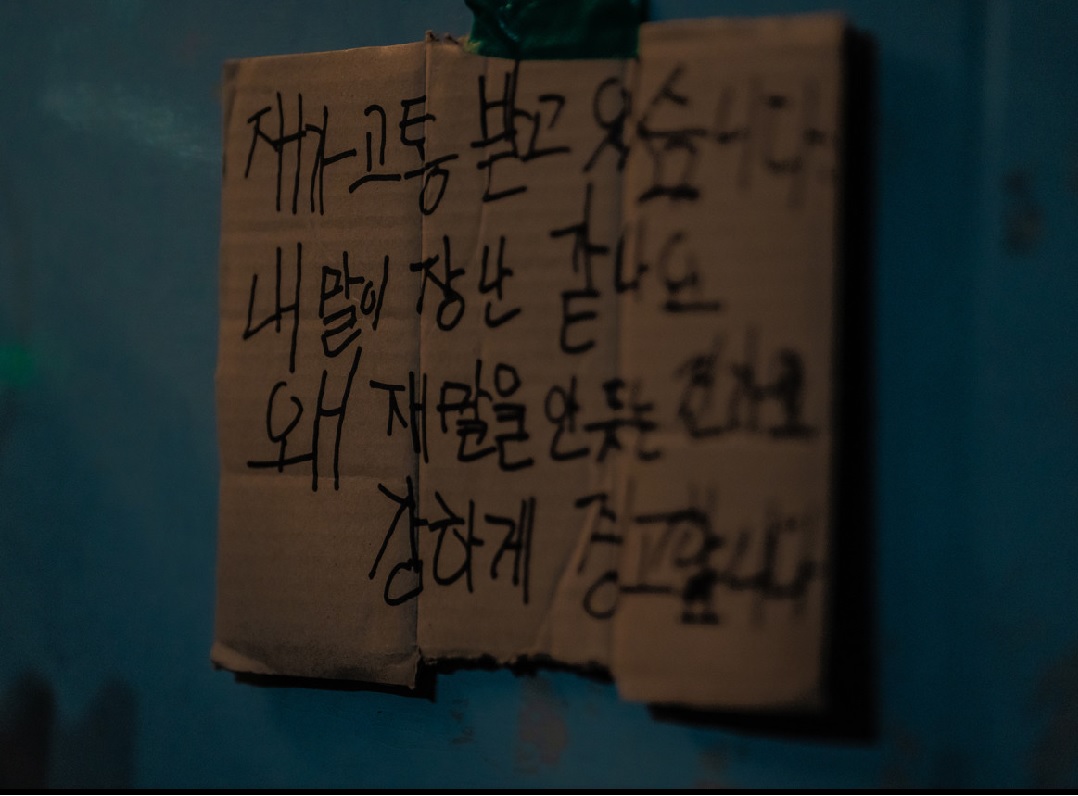 재가 고통 받고 잇습니다.
내 말이 장난 같나요
왜 재말을 안듯는
강하게 경고합니다